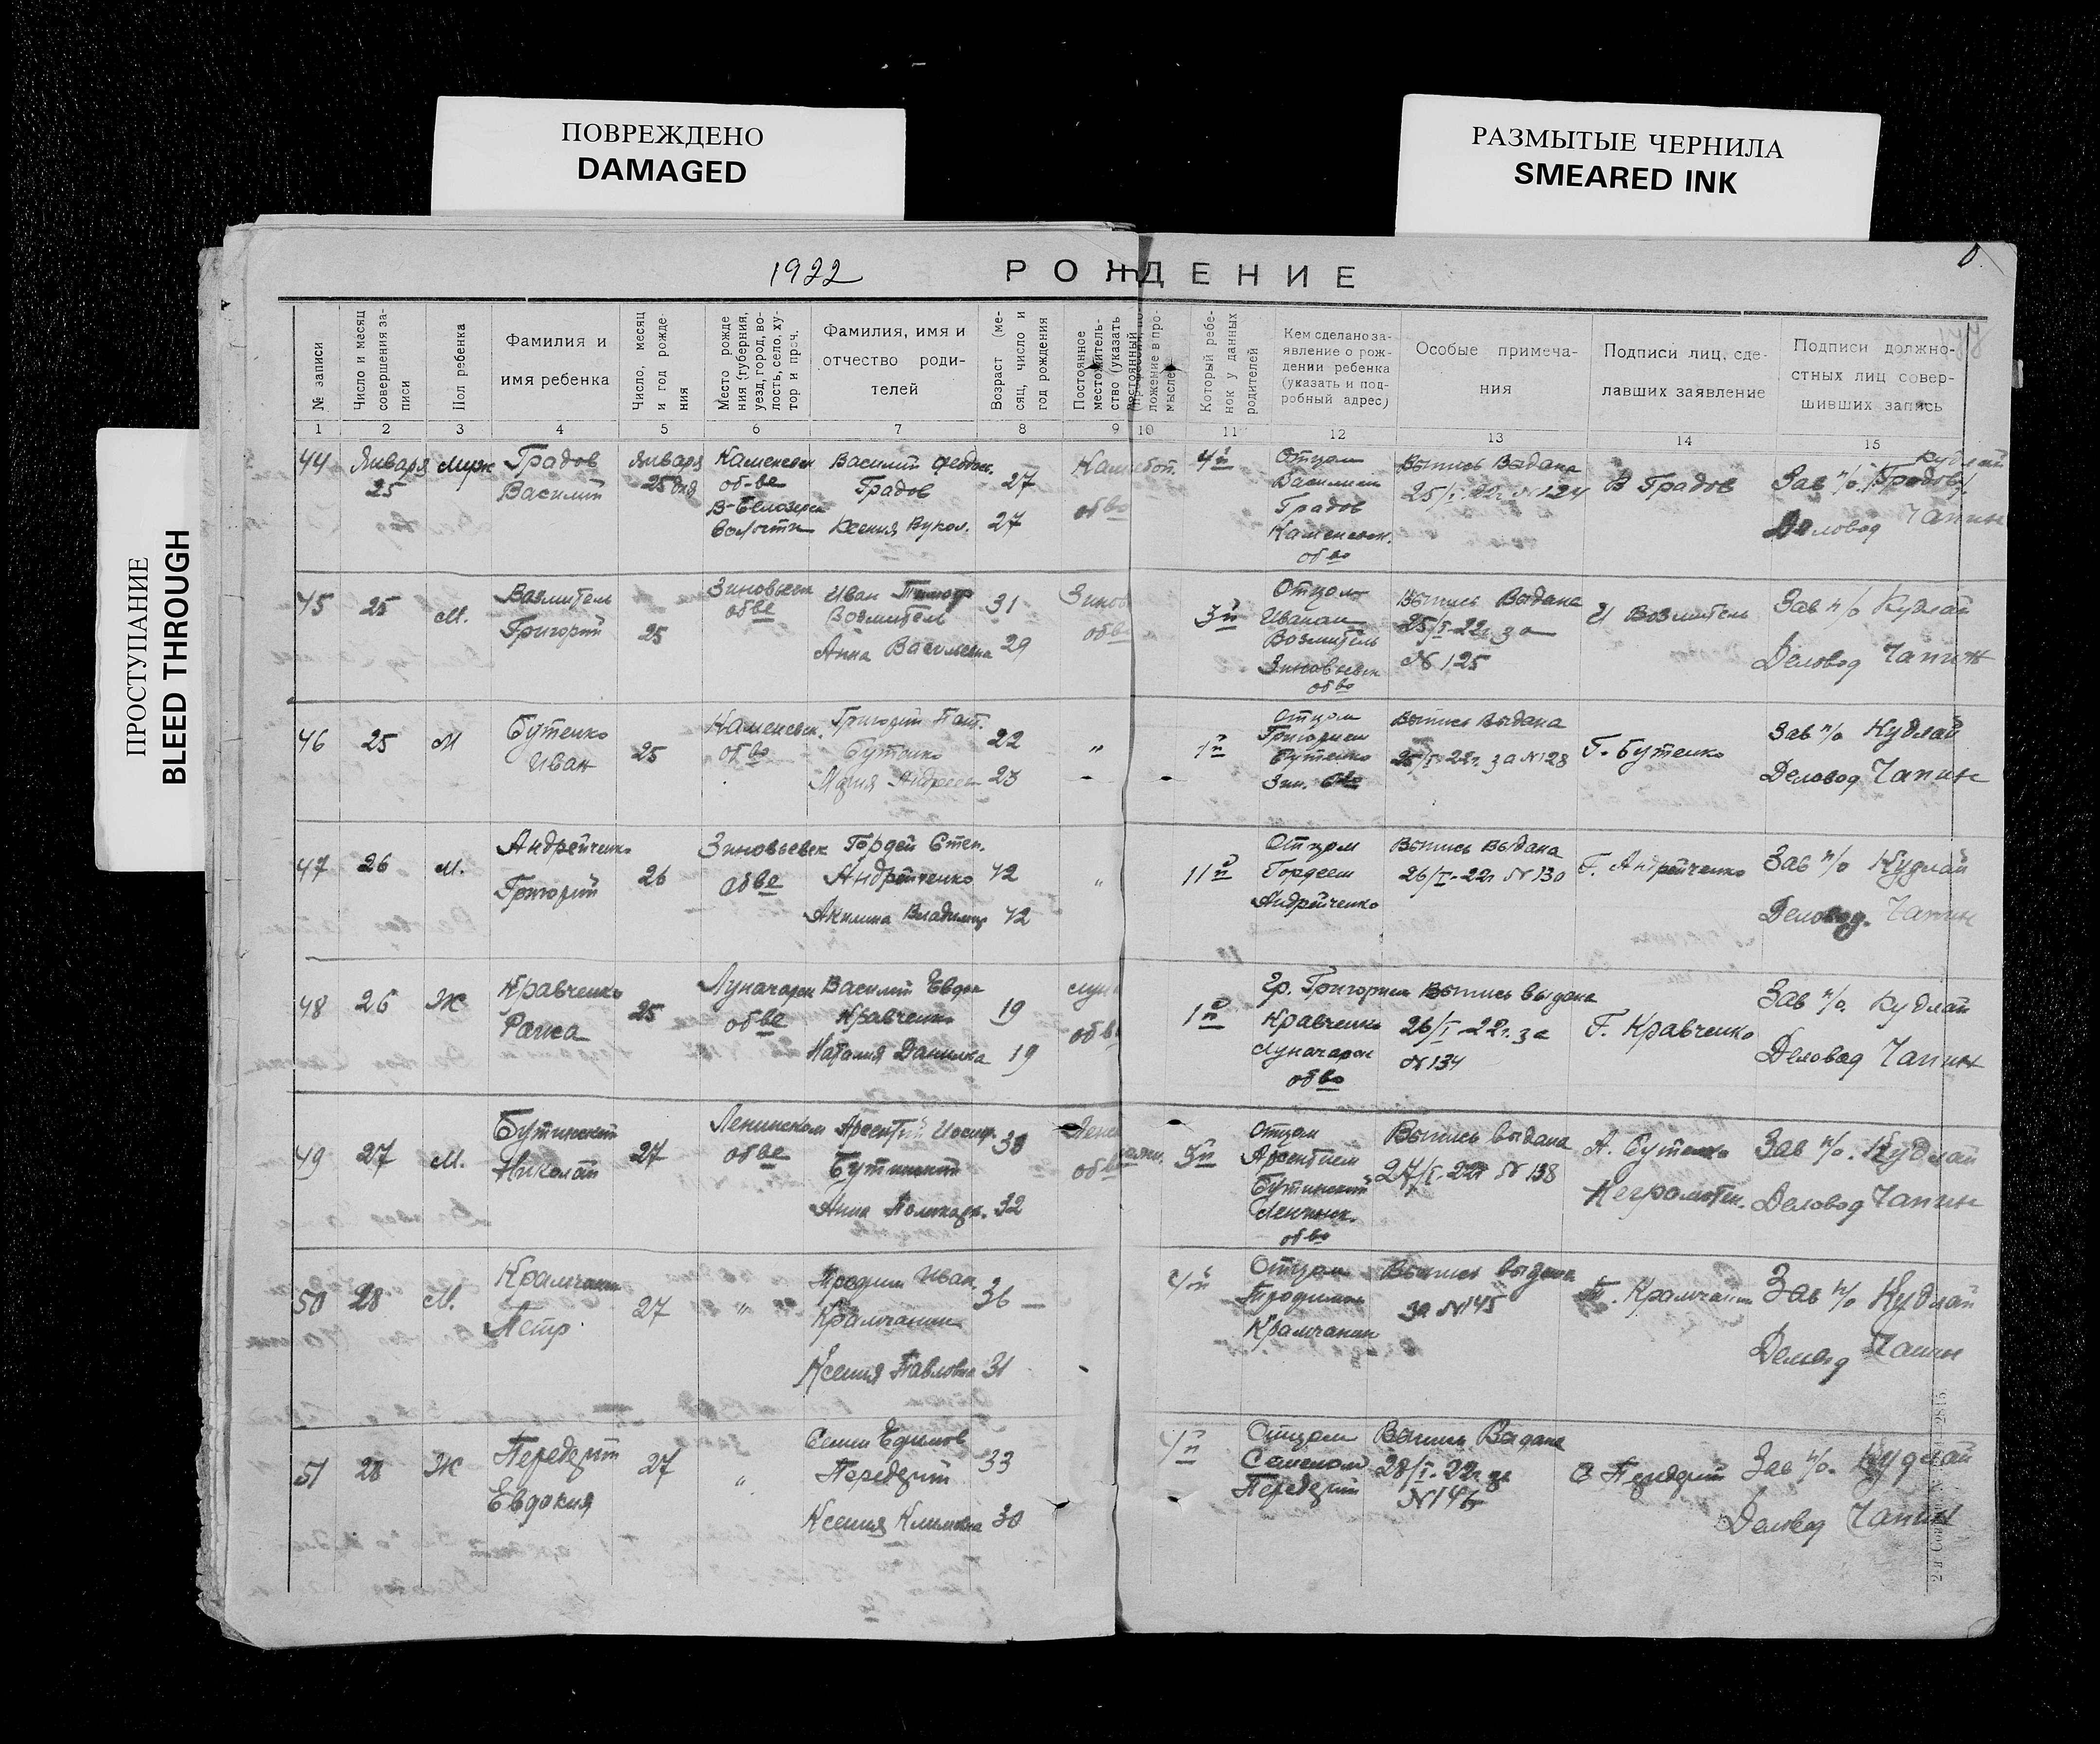 ПОВРЕЖДЕНО
DAMAGED
РАЗМЫТЫЕ ЧЕРНИЛА
SMEARED INK
ПРОСТУПАНИЕ
BLEED THROUGH
1922
РОЖДЕНИЕ
№ записи
Число и месяц
совершения за-
писи
Пол ребенка
Фамилия и
имя ребенка
Число, месяц
и год рожде-
ния
Место рожде
ния (губерния,
уезд, город, во-
лость, село, ху-
тор и проч.
Фамилия, имя и
отчество роди-
телей
Возраст (ме-
сяц, число и
год рождения
Постоянное
местожитель-
ство (указать
ложение в про-
мысле
Который ребе-
нок у данных
родителей
Кем сделано за-
явление о рож-
дении ребенка
(указать и под-
робный адрес)
Особые примеча-
ния
Подписи лиц, сде-
лавших заявление
Подписи должно-
стных лиц совер-
шивших запись
1 2 3 4 5 6 7 8 9 10 11 12 13 14 15
44
Января
25
муж
Градов
Василий
Января
25
Каменевск
об-ве
В-Белозерск
Волости
Василий Федос.
Градов
Ксения Вукол.
27
27
обво
4й
Отцом
Василием
Градов
Каменевск.
обво
Выпись Выдана
25/I-22г №124
В Градов
Кудлай
Зав п/о
Деловод Чапин
45
25
М.
Возлитель
Григорий
25
Зиновьевск
обве
Иван
Возлитель
Анна Васильевна
31
29
3й
Отцом
Иваном
Возлитель
Зиновьевск
обво
Выпись Выдана
25/I-22г за
№125
И Возлитель
Зав п/о Кудлай
Деловод Чапин
46
25
М
Бутенко
Иван
25
Каменевск.
обво
Григорий
Бутенко
22
23
"
1й
Отцом
Григорием
Бутенко
Зин. обво
Выпись выдана
25/I-22г. за №128
Г. Бутенко
Зав п/о Кудлай
Деловод Чапин
47
26
М.
Андрейченко
Григорий
26
Зиновьевск
обве
Гордей Степ.
Андрейченко
Акилина Владимир
42
42
"
11й
Отцом
Гордеем
Андрейченко
Выпись выдана
26/I-22г №130
Г. Андрейченко
Зав п/о Кудлай
Деловод. Чапин
48
26
Ж
Кравченко
Раиса
25
Луначарск
обве
Василий Евдок
Кравченко
Наталия Данилка
19
19
1й
Гр. Григорием
Кравченко
Луначарск
обво
Выпись выдана
26/I-22г. за
№134
Г. Кравченко
Зав п/о. Кудлай
Деловод Чапин
49
27
М.
Бутинский
Николай
27
Ленинском
обве
Арсентий Иосиф.
Бутинский
Анна Поликарп.
38
32
5й
Отцом
Арсентием
Бутинский
Ленинск.
обво
Выпись выдана
27/I-22г №138
А. Бутенко
Неграмотен.
Зав п/о. Кудлай
Деловод Чапин
50
28
М.
Крамчанин
Петр
27
"
Трофим Иван.
Крамчанин
Ксения Павловна
36
31
4й
Отцом
Трофимом
Крамчанин
Выпись выдана
за №145
Т. Крамчанин
Зав п/о Кудлай
Деловод Чапин
51
28
Ж
Передерий
Евдокия
27
"
Семен Ефимов
Передерий
Ксения Климовна
33
30
1й
Отцом
Семеном
Передерий
Выпись Выдана
28/I-22г за
№146
С Передерий
Зав п/о. Кудлай
Деловод Чапин